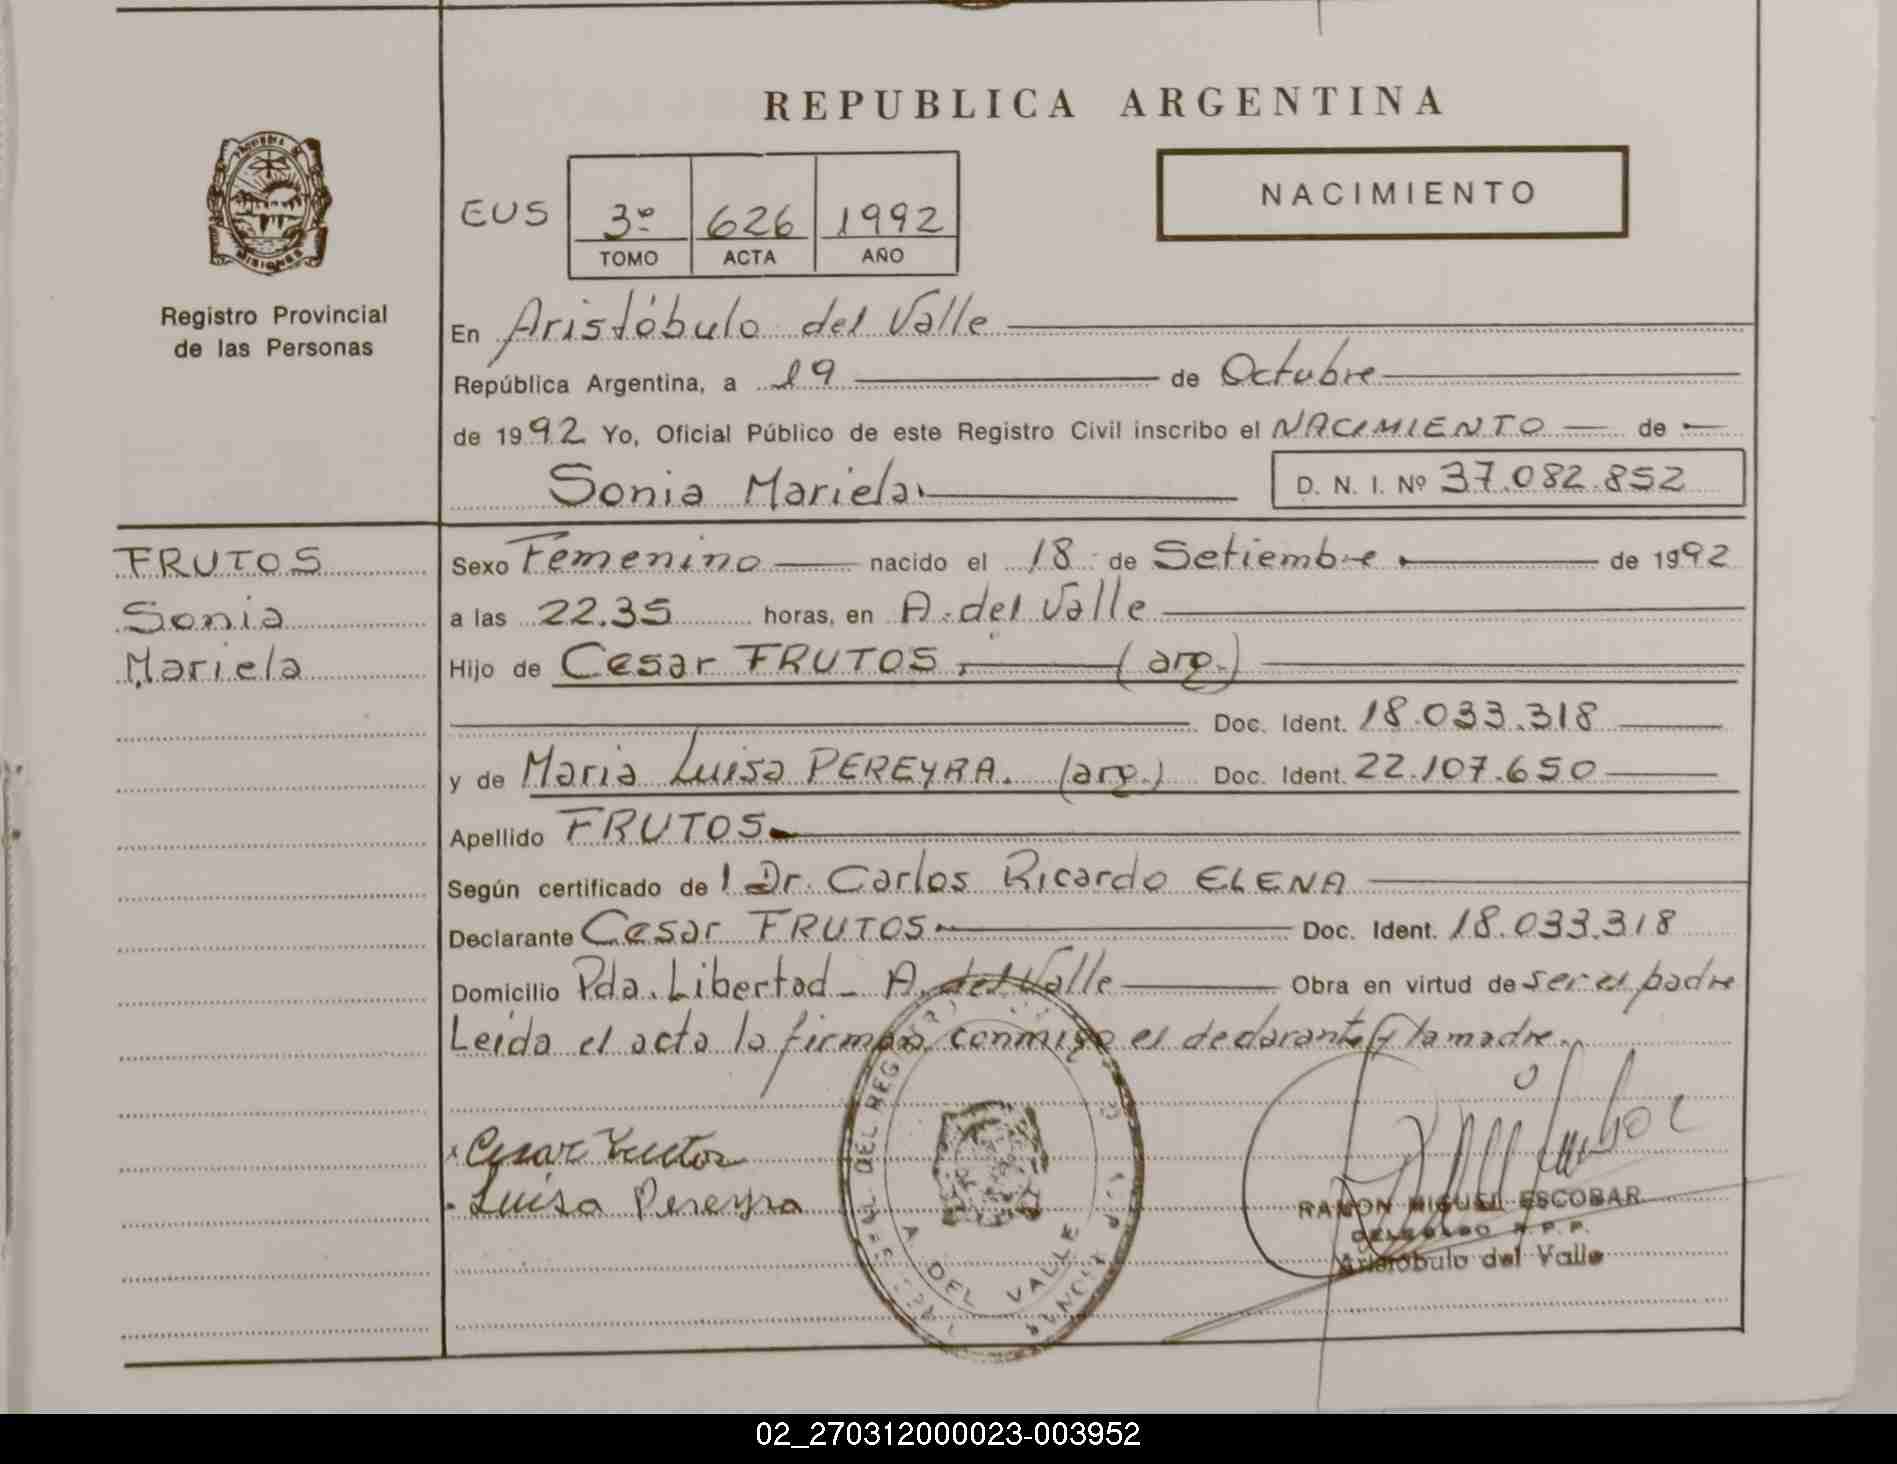 REPUBLICA ARGENTINA
PROVINCIA DE
MISIONES
Registro Provincial
de las Personas
NACIMIENTO
EUS 3º 626 1992
TOMO ACTA AÑO
En Aristóbulo del Valle
República Argentina, a 19 de Octubre
de 1992 Yo, Oficial Público de este Registro Civil inscribo el NACIMIENTO de
Sonia Mariela D. N. I. Nº 37.082.852
FRUTOS
Sonia
Mariela
Sexo Femenino nacido el 18 de Setiembre de 1992
a las 22.35 horas, en A. del Valle
Hijo de Cesar FRUTOS (arg.)
Doc. Ident. 18.033.318
y de Maria Luisa PEREYRA. (arg.) Doc. Ident. 22.107.650
Apellido FRUTOS
Según certificado de l Dr. Carlos Ricardo ELENA
Declarante Cesar FRUTOS Doc. Ident. 18.033.318
Domicilio Pda. Libertad - A. del Valle Obra en virtud de ser el padre
Leida el acta la firman conmigo el declarante y la madre.
Cesar Frutos
Luisa Pereyra
DEL REG
A. DEL VALLE
RAMON MIGUEL ESCOBAR
DELEGADO R.P.P.
Aristóbulo del Valle
02_270312000023-003952